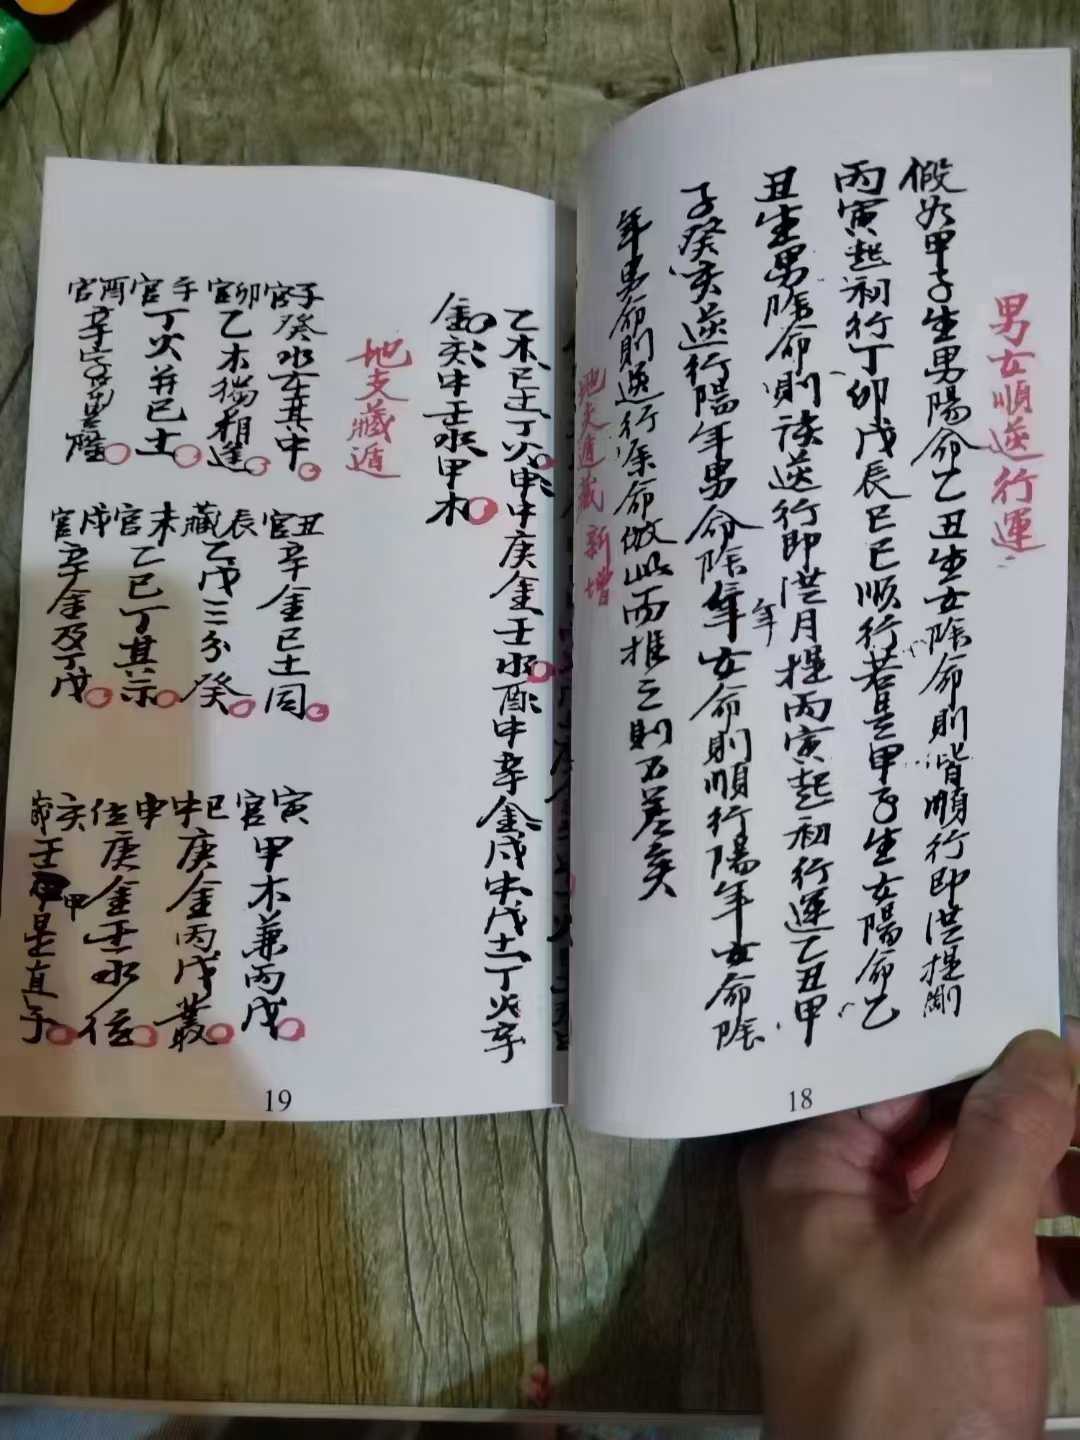 男女順逆行運
假如甲子生男陽命乙丑生女陰命則皆順行即從提剛
丙寅起初行丁卯戊辰巳巳順行若是甲子生女陽命乙
丑生男陰命則該逆行即從月提丙寅起初行運乙丑甲
子癸亥逆行陽年男命陰年女命則順行陽年女命陰
年
年男命則逆行余命倣此而推之則万差矣
地支遁藏 新增
18
乙木巳土丁火申中庚金壬水酉中辛金戌中戊土丁火辛
金亥中壬水甲木
地支藏遁
子宮癸水在其中
丑宮辛金巳土同
寅宮甲木兼丙戊
卯宮乙木獨相逢
辰藏乙戊三分癸
巳中庚金丙戊叢
午宮丁火并巳土
未宮乙巳丁其宗
申位庚金壬水位
酉宮辛字
戌宮辛金及丁戊
亥 壬甲是真
19